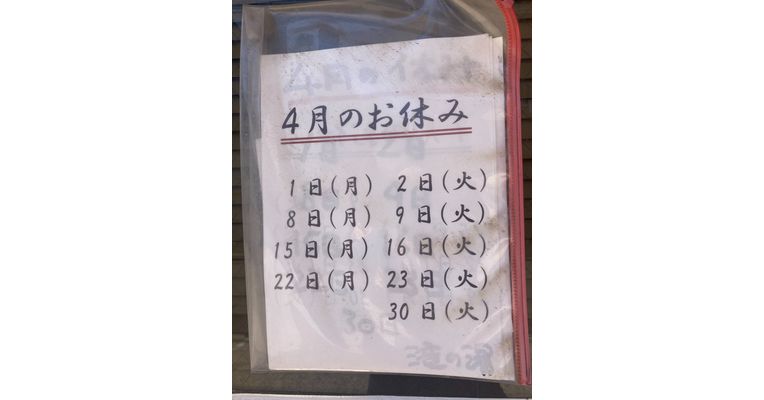 4月のお休み
1日(月) 2日(火)
8日(月) 9日(火)
15日(月) 16日(火)
22日(月) 23日(火)
30日(火)